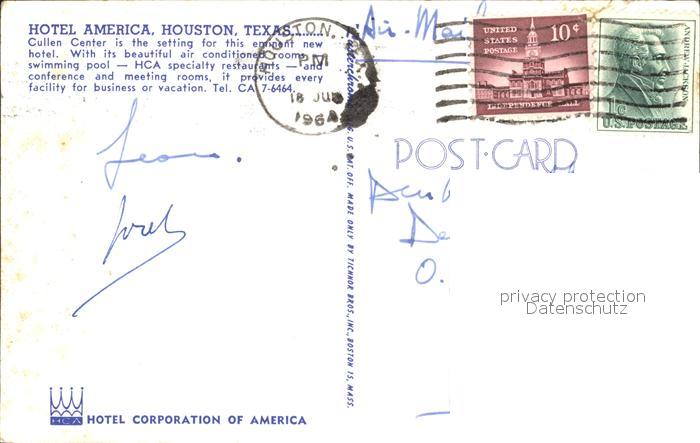 HOTEL AMERICA, HOUSTON, TEXAS.....
Cullen Center is the setting for this eminent new
hotel. With its beautiful air conditioned rooms,
swimming pool — HCA specialty restaurants — and
conference and meeting rooms, it provides every
facility for business or vacation. Tel. CA 7-6464.
HOUSTON,
PM
18 JUN
1964
Air-Mail
UNITED
STATES
POSTAGE
10¢
INDEPENDENCE HALL
1¢
U.S. POSTAGE
POST-CARD
U.S. PAT. OFF. MADE ONLY BY TICHNOR BROS., INC., BOSTON 15, MASS.
De
O.
privacy protection
Datenschutz
HCA
HOTEL CORPORATION OF AMERICA